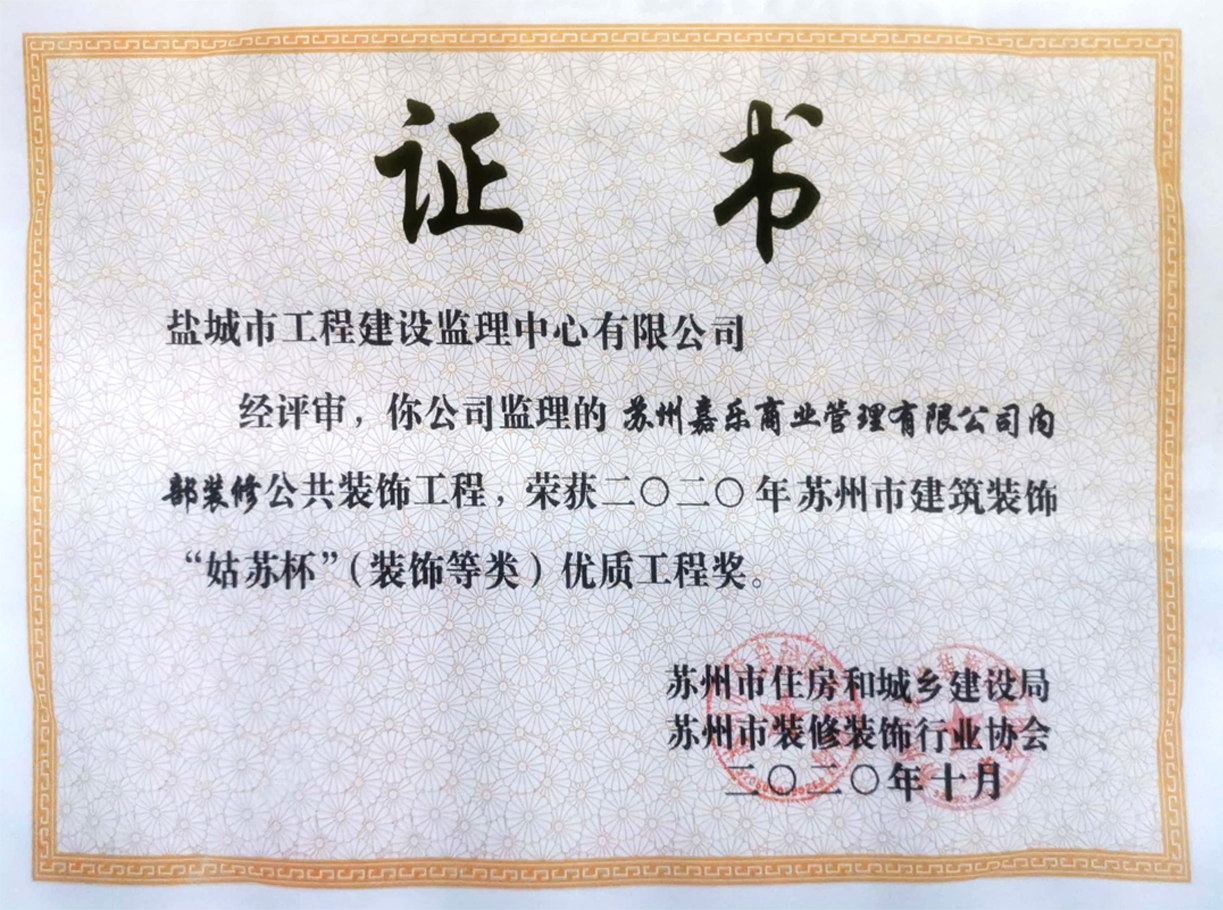 证书
盐城市工程建设监理中心有限公司
经评审，你公司监理的 苏州嘉乐商业管理有限公司内
部装修公共装饰工程，荣获二〇二〇年苏州市建筑装饰
“姑苏杯”（装饰等类）优质工程奖。
苏州市住房和城乡建设局
苏州市装修装饰行业协会
二〇二〇年十月